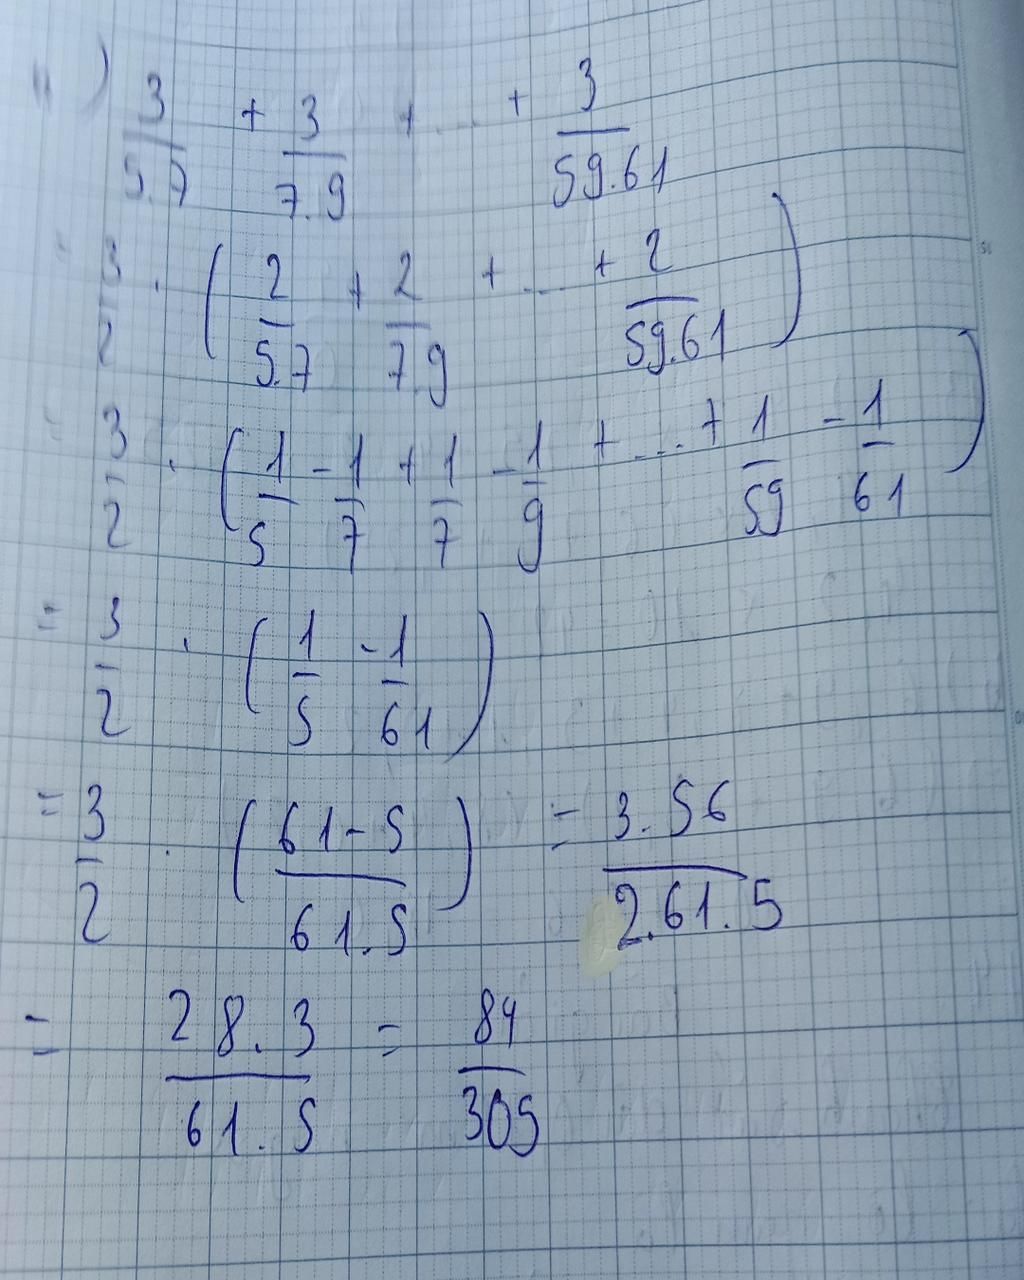 ) 3/5.7 + 3/7.9 + ... + 3/59.61
= 3/2 . ( 2/5.7 + 2/7.9 + ... + 2/59.61 )
= 3/2 . ( 1/5 - 1/7 + 1/7 - 1/9 + ... + 1/59 - 1/61 )
= 3/2 . ( 1/5 - 1/61 )
= 3/2 . ( 61-5/61.5 ) = 3.56/2.61.5
= 28.3/61.5 = 84/305